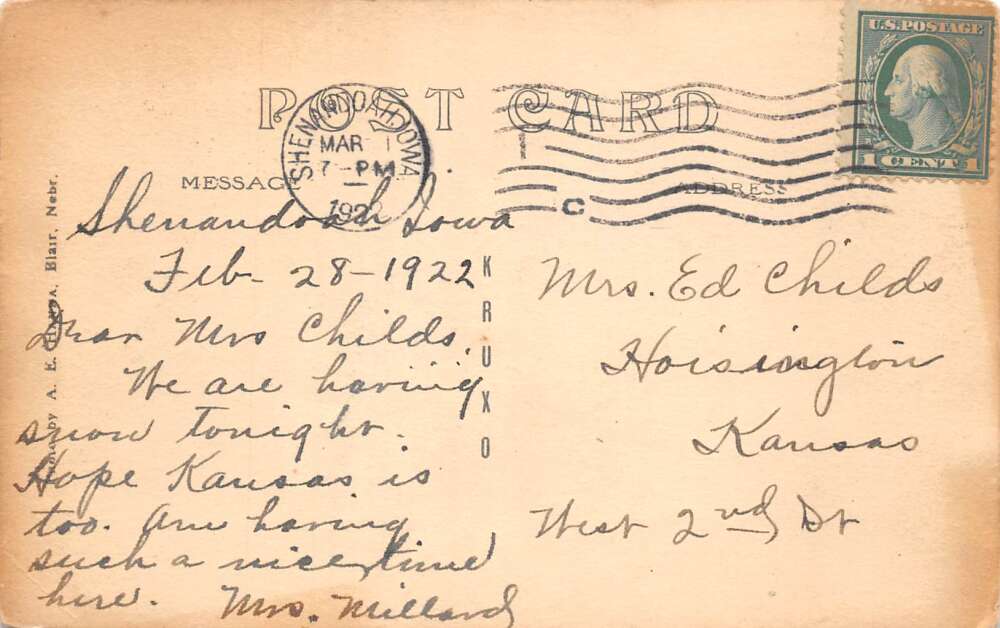 POST CARD
U.S. POSTAGE
1 CENT 1
SHENANDOAH, IOWA
MAR 1
7 - PM
1922
C
MESSAGE
ADDRESS
Shenandoah Iowa
Feb - 28 - 1922
Dear Mrs Childs.
We are having
snow tonight.
Hope Kansas is
too. Am having
such a nice time
here. Mrs. Millard
KRUXO
Mrs. Ed Childs
Hoisington
Kansas
West 2nd St
by A. E. Blair, Nebr.